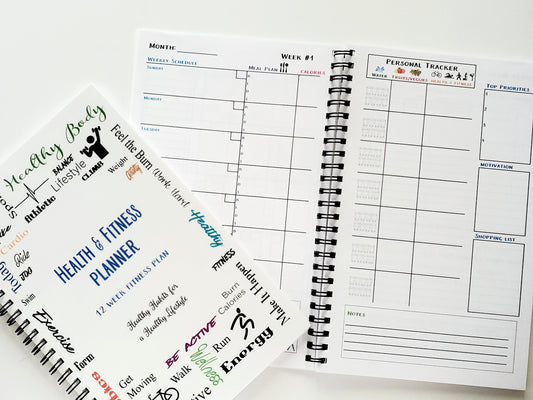 Healthy Body
Sports
Athletic
BALANCE
Lifestyle
CLIMB
Feel the Burn
Weight
Work Hard
Healthy
FITNESS
Make It Happen
Cardio
Ride
Today
Swim
Exercise
Form
HEALTH & FITNESS
PLANNER
12 WEEK FITNESS PLAN
Healthy Habits for
a Healthy Lifestyle
Burn
Calories
BE ACTIVE
Wellness
Run
Energy
Get
Moving
Walk
Month:
Week #1
Weekly Schedule
Meal Plan
Calories
Sunday
Monday
Tuesday
Personal Tracker
Water
Fruits/Veggies
Health & Fitness
Top Priorities
1
2
3
4
Motivation
Shopping List
Notes